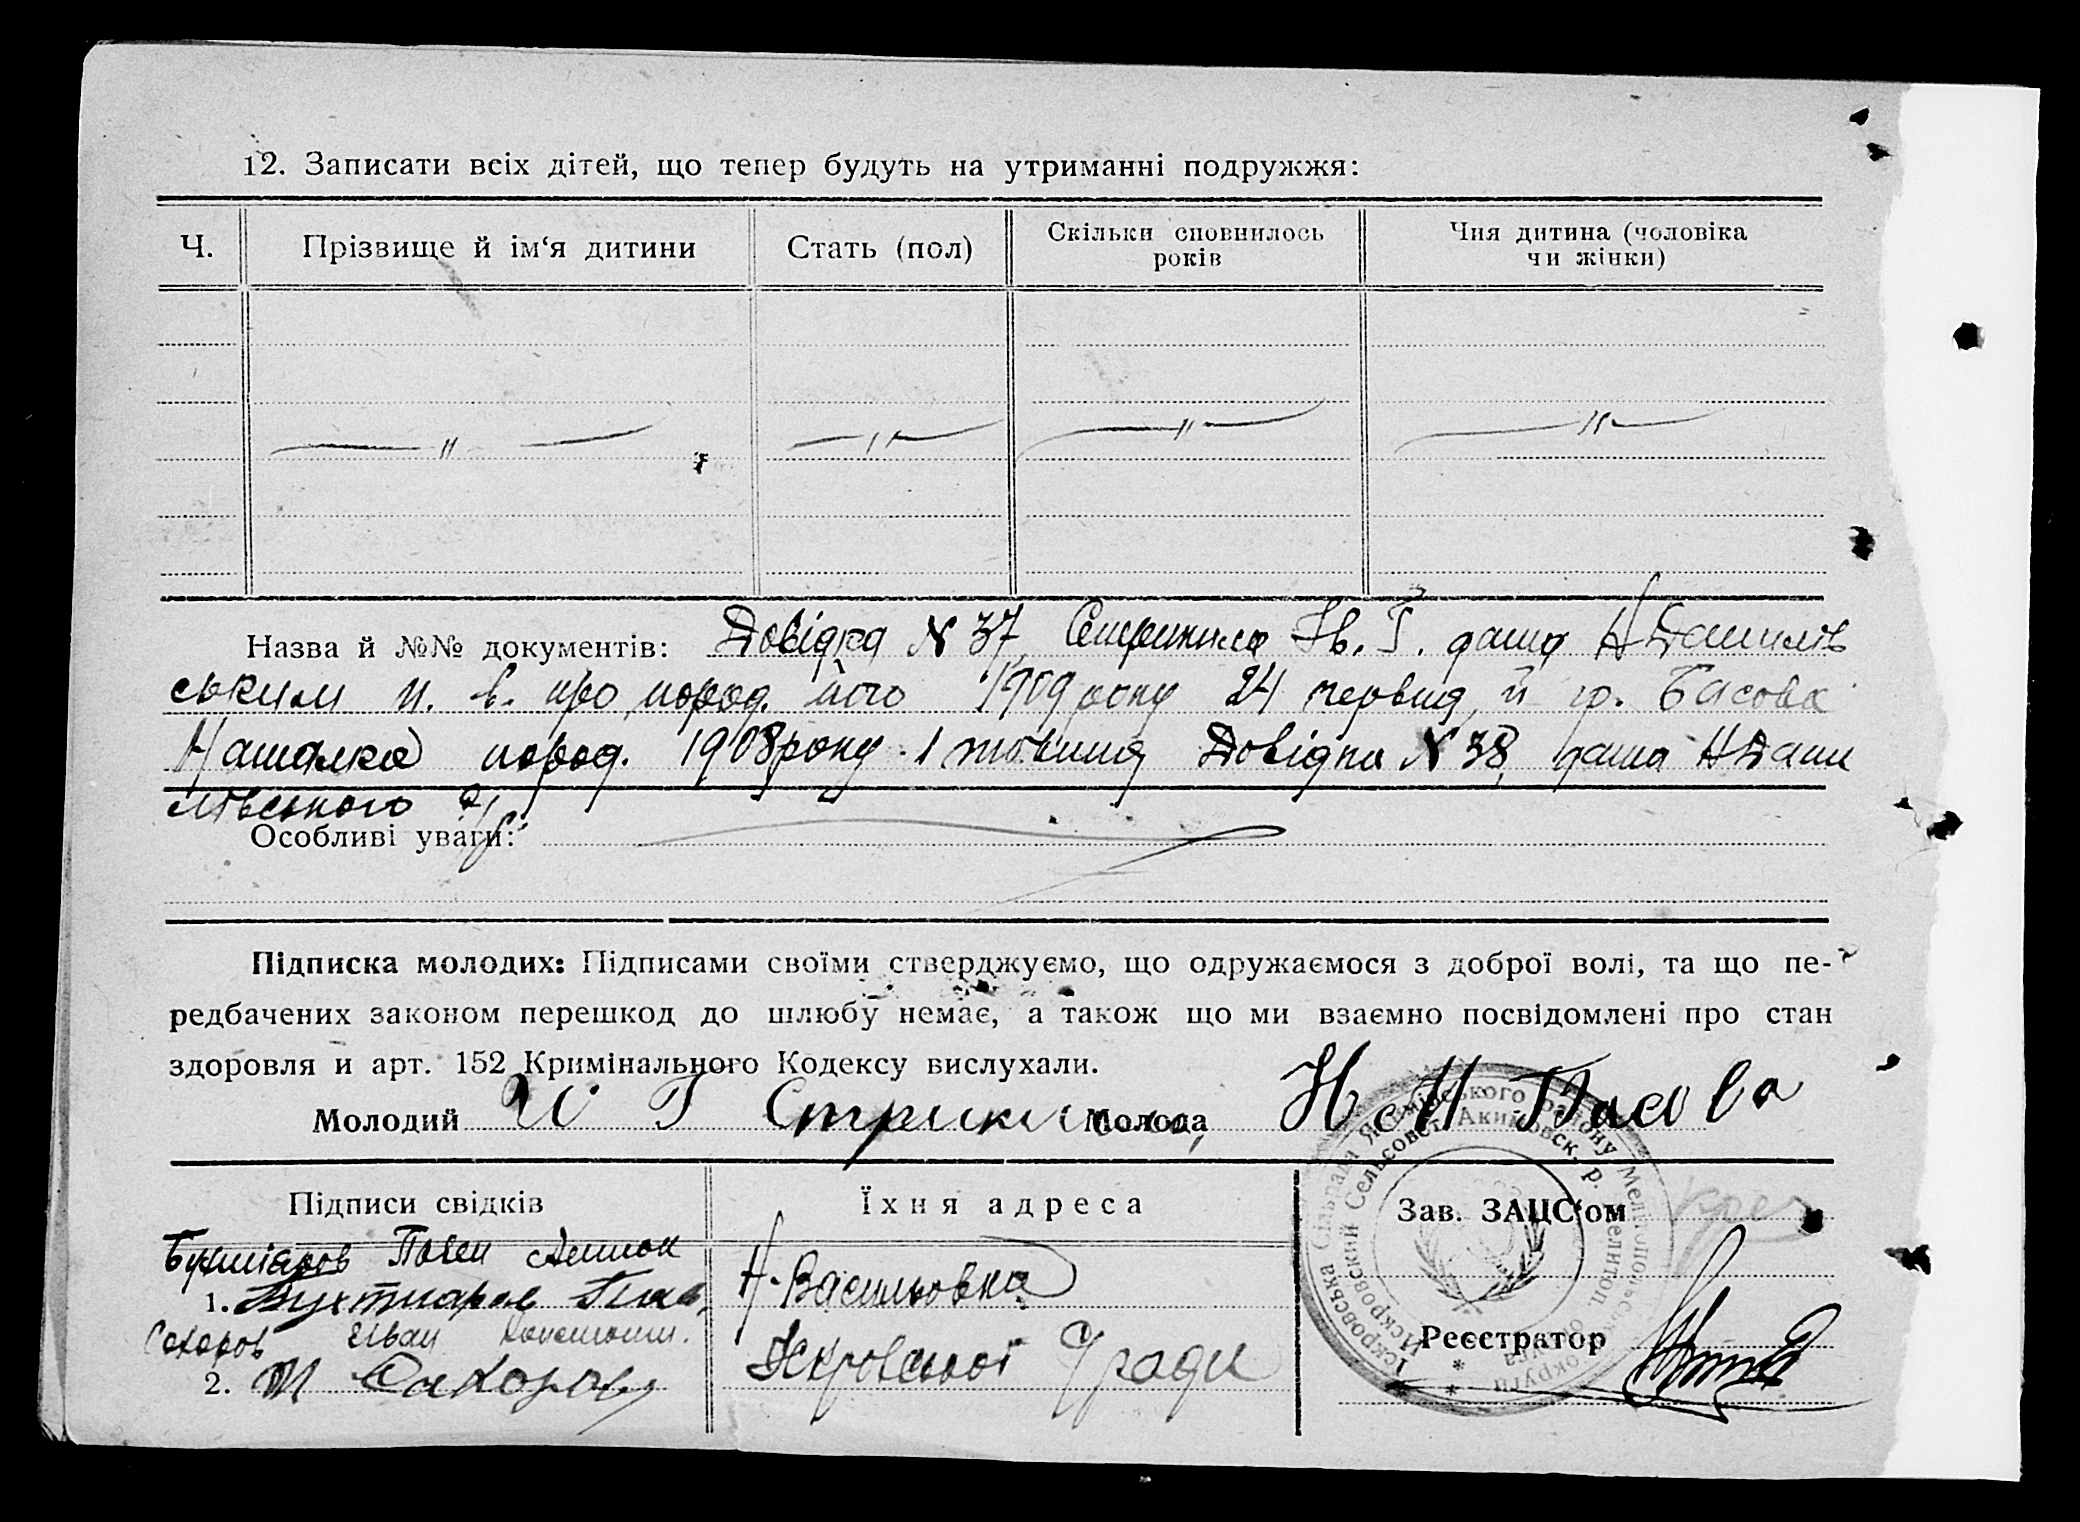 12. Записати всіх дітей, що тепер будуть на утриманні подружжя:
Ч. Прізвище й ім‘я дитини Стать (пол) Скільки сповнилось років Чия дитина (чоловіка чи жінки)
— " — — " — — " — — " —
Назва й №№ документів: Довідка N 37 Ів. Г. дана
ським п. в. про пород. його 1909 року 24 червня, й гр. Басова
Наталка пород. 1908 року 1 жовтня Довідка N 38, дана Н Дани
лівського
Особливі уваги:
Підписка молодих: Підписами своїми стверджуємо, що одружаємося з доброї волі, та що пе-
редбачених законом перешкод до шлюбу немає, а також що ми взаємно посвідомлені про стан
здоровля и арт. 152 Кримінального Кодексу вислухали.
Молодий И Г Молода Н И Басова
Підписи свідків Їхня адреса Зав. ЗАЦС‘ом
Бухтіяров Павел
1. Бухтиаров Пав. Н-Васильовка
Сахаров Иван
2. И Сахаров Іскровської С/ради Реєстратор
Іскровська Сільрада Якимівського Району Мелітопольської округи
Искровский Сельсовет Акимовск. р. Мелитоп. округа